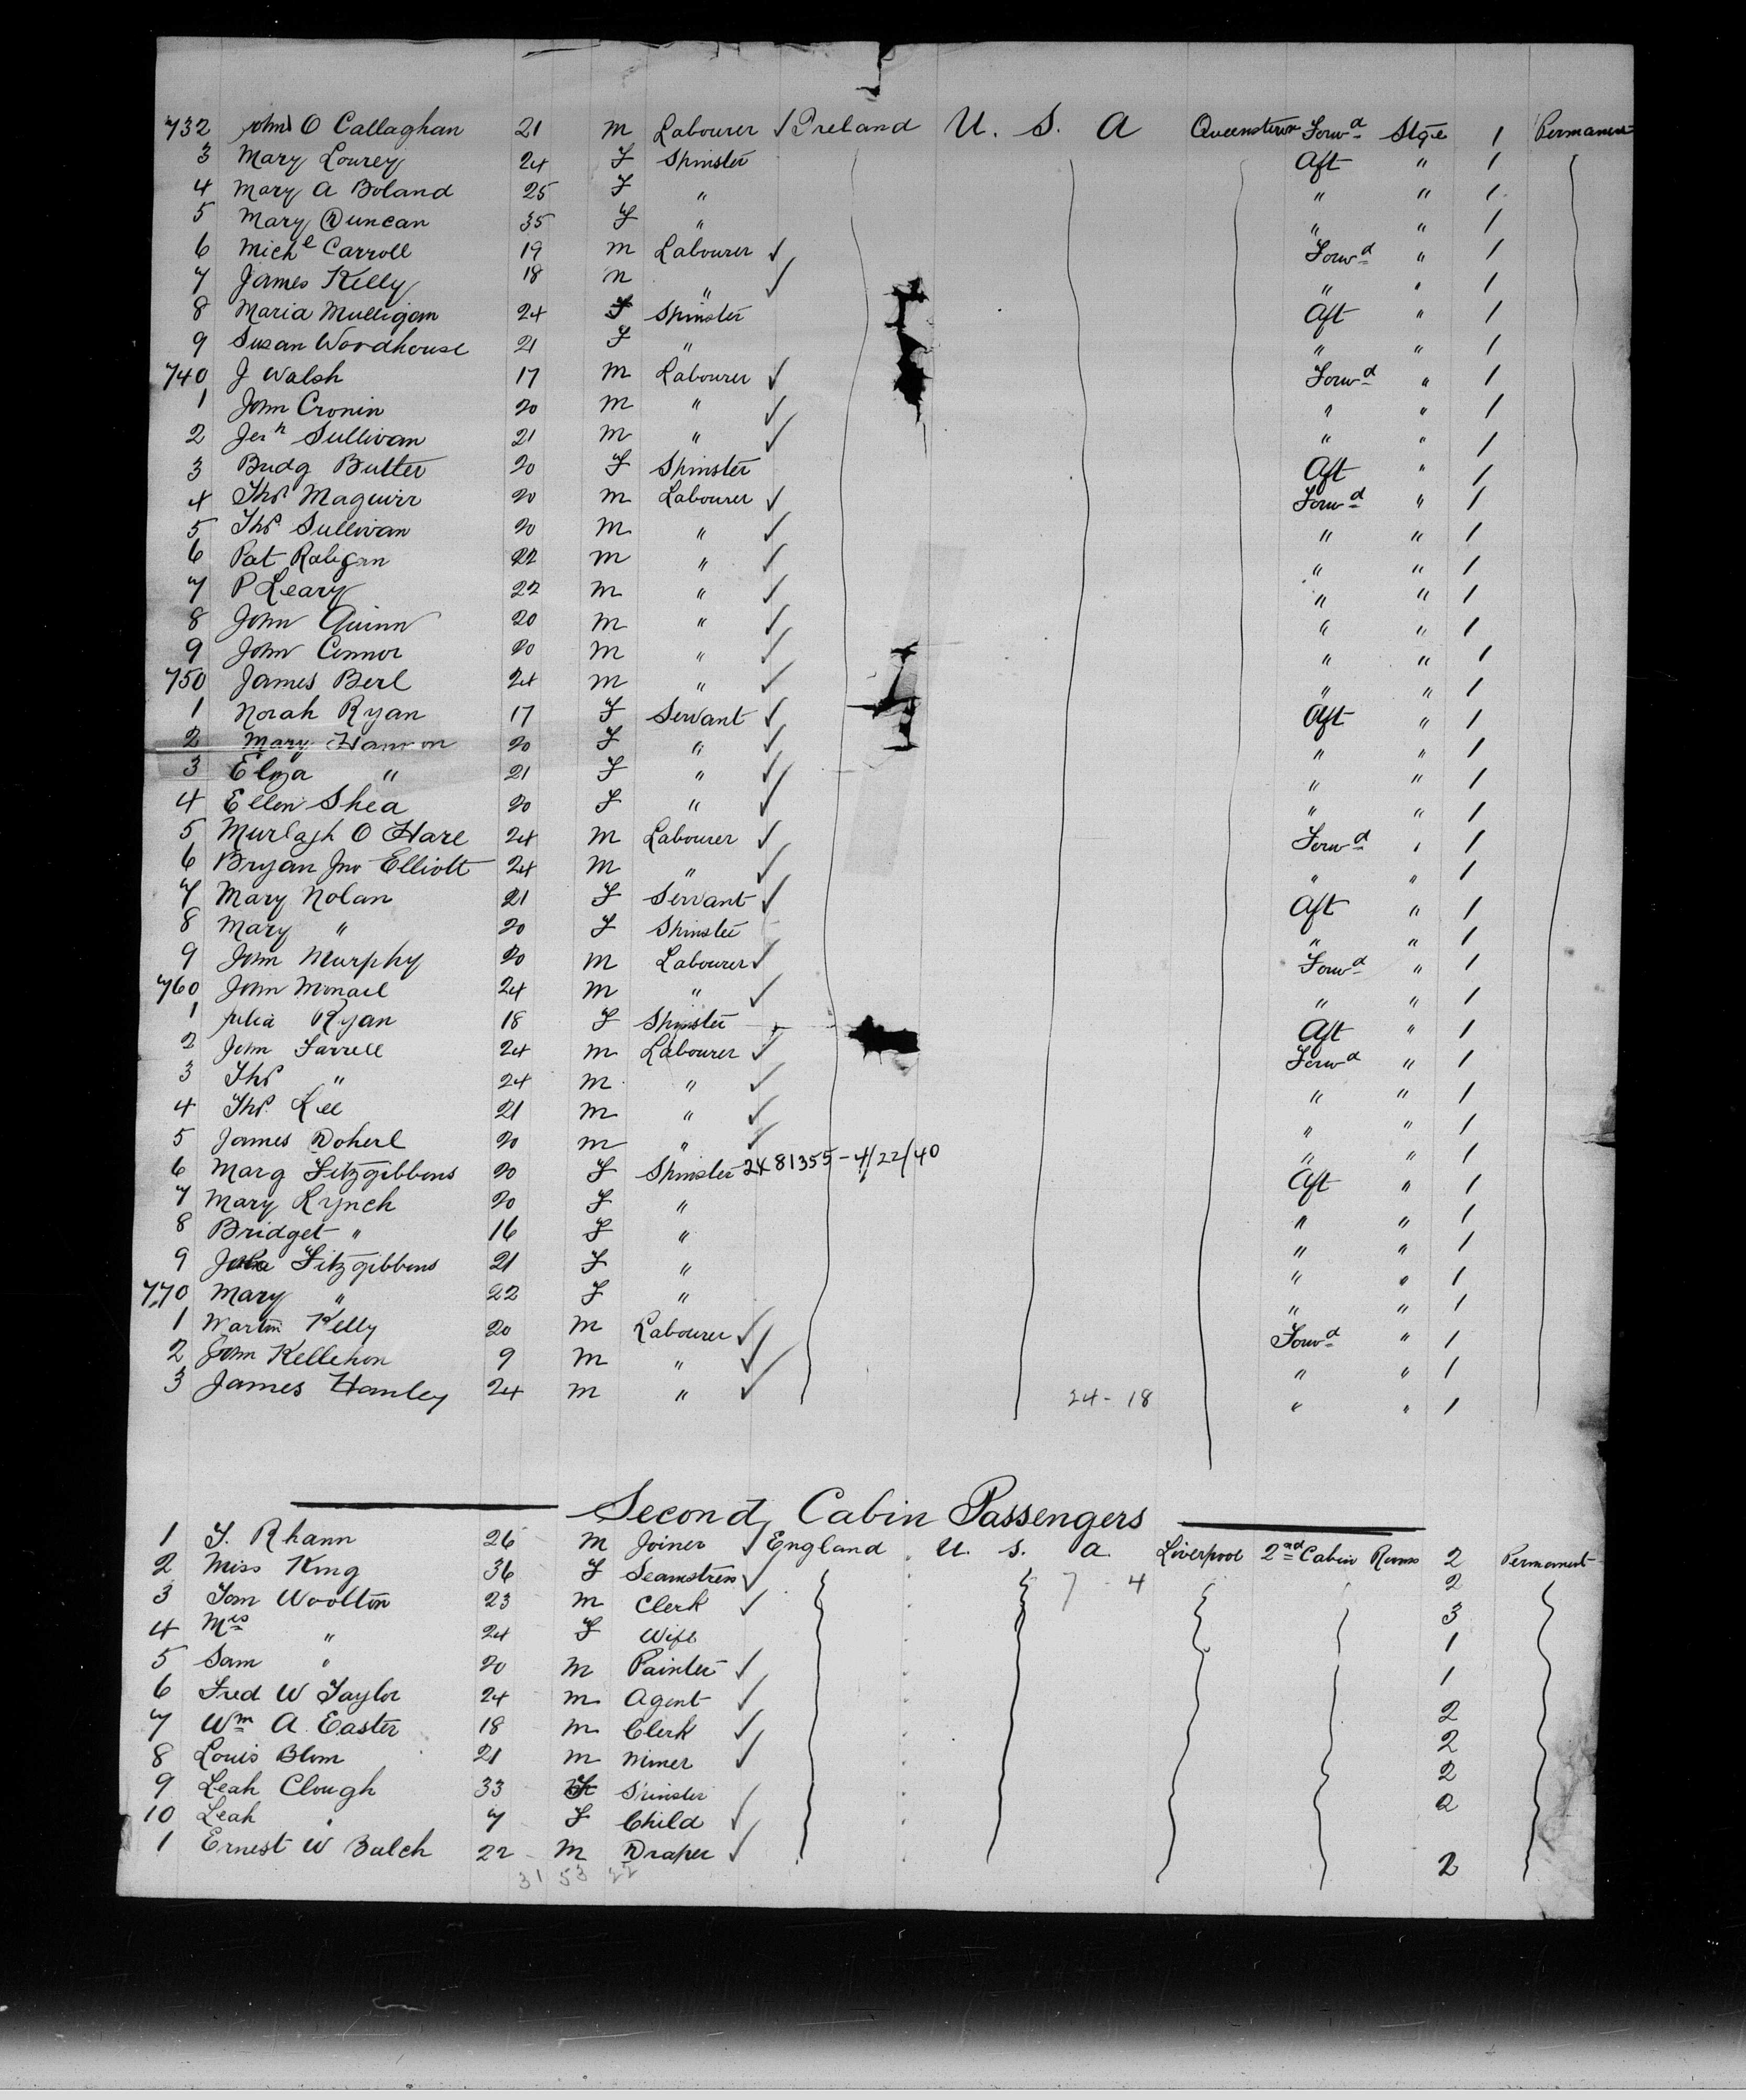 732 John O Callaghan 21 m Labourer ✓ Ireland U. S. A Queenstown Forwd Stge 1 Permanent
3 Mary Lourey 24 F Spinster Aft " 1
4 Mary A Boland 25 F " " " 1
5 Mary Duncan 35 F " " " 1
6 Michl Carroll 19 m Labourer ✓ Forwd " 1
7 James Kelly 18 m " ✓ " " 1
8 Maria Mulligan 24 F Spinster Aft " 1
9 Susan Woodhouse 21 F " " " 1
740 J Walsh 17 m Labourer ✓ Forwd " 1
1 John Cronin 20 m " ✓ " " 1
2 Jerh Sullivan 21 m " ✓ " " 1
3 Bridg Butter 20 F Spinster Aft " 1
4 Thos Maguirr 20 m Labourer ✓ Forwd " 1
5 Thos Sullivan 20 m " ✓ " " 1
6 Pat 22 m " ✓ " " 1
7 P Leary 22 m " ✓ " " 1
8 John Quinn 20 m " ✓ " " 1
9 John Connor 20 m " ✓ " " 1
750 James Berl 24 m " ✓ " " 1
1 Norah Ryan 17 F Servant ✓ Aft " 1
2 Mary Hannon 20 F " ✓ " " 1
3 Eliza " 21 F " ✓ " " 1
4 Ellen Shea 20 F " ✓ " " 1
5 Murtagh O Hare 24 m Labourer ✓ Forwd " 1
6 Bryan Jno Elliott 24 m " ✓ " " 1
7 Mary Nolan 21 F Servant ✓ Aft " 1
8 Mary " 20 F Spinster " " 1
9 John Murphy 20 m Labourer ✓ Forwd " 1
760 John 24 m " ✓ " " 1
1 Julia Ryan 18 F Spinster Aft " 1
2 John Farrell 24 m Labourer ✓ Forwd " 1
3 Thos " 24 m " ✓ " " 1
4 Thos. 21 m " ✓ " " 1
5 James Doherl 20 m " ✓ " " 1
6 Marg Fitzgibbons 20 F Spinster 24 81355 - 4/22/40 Aft " 1
7 Mary Lynch 20 F " " " 1
8 Bridget " 16 F " " " 1
9 Julia Fitzgibbons 21 F " " " 1
770 Mary " 22 F " " " 1
1 Martin Kelly 20 m Labourer ✓ Forwd " 1
2 John Kellehon 9 m " ✓ " " 1
3 James Hanley 24 m " ✓ 24 - 18 " " 1
Second Cabin Passengers
1 T. Rhann 26 m Joiner ✓ England U. S. A Liverpool 2nd Cabin Rooms 2 Permanent
2 Miss King 36 F Seamstress ✓ 7 - 4 2
3 Tom Woolton 23 m Clerk ✓ 3
4 Mrs " 24 F Wife 1
5 Sam " 20 m Painter ✓ 1
6 Fred W Taylor 24 m Agent ✓ 2
7 Wm A. Easter 18 m Clerk ✓ 2
8 Louis Blom 21 m miner ✓ 2
9 Leah Clough 33 F Spinster 2
10 Leah " 7 F Child ✓
1 Ernest W Balch 22 m Draper ✓ 2
31 53 22